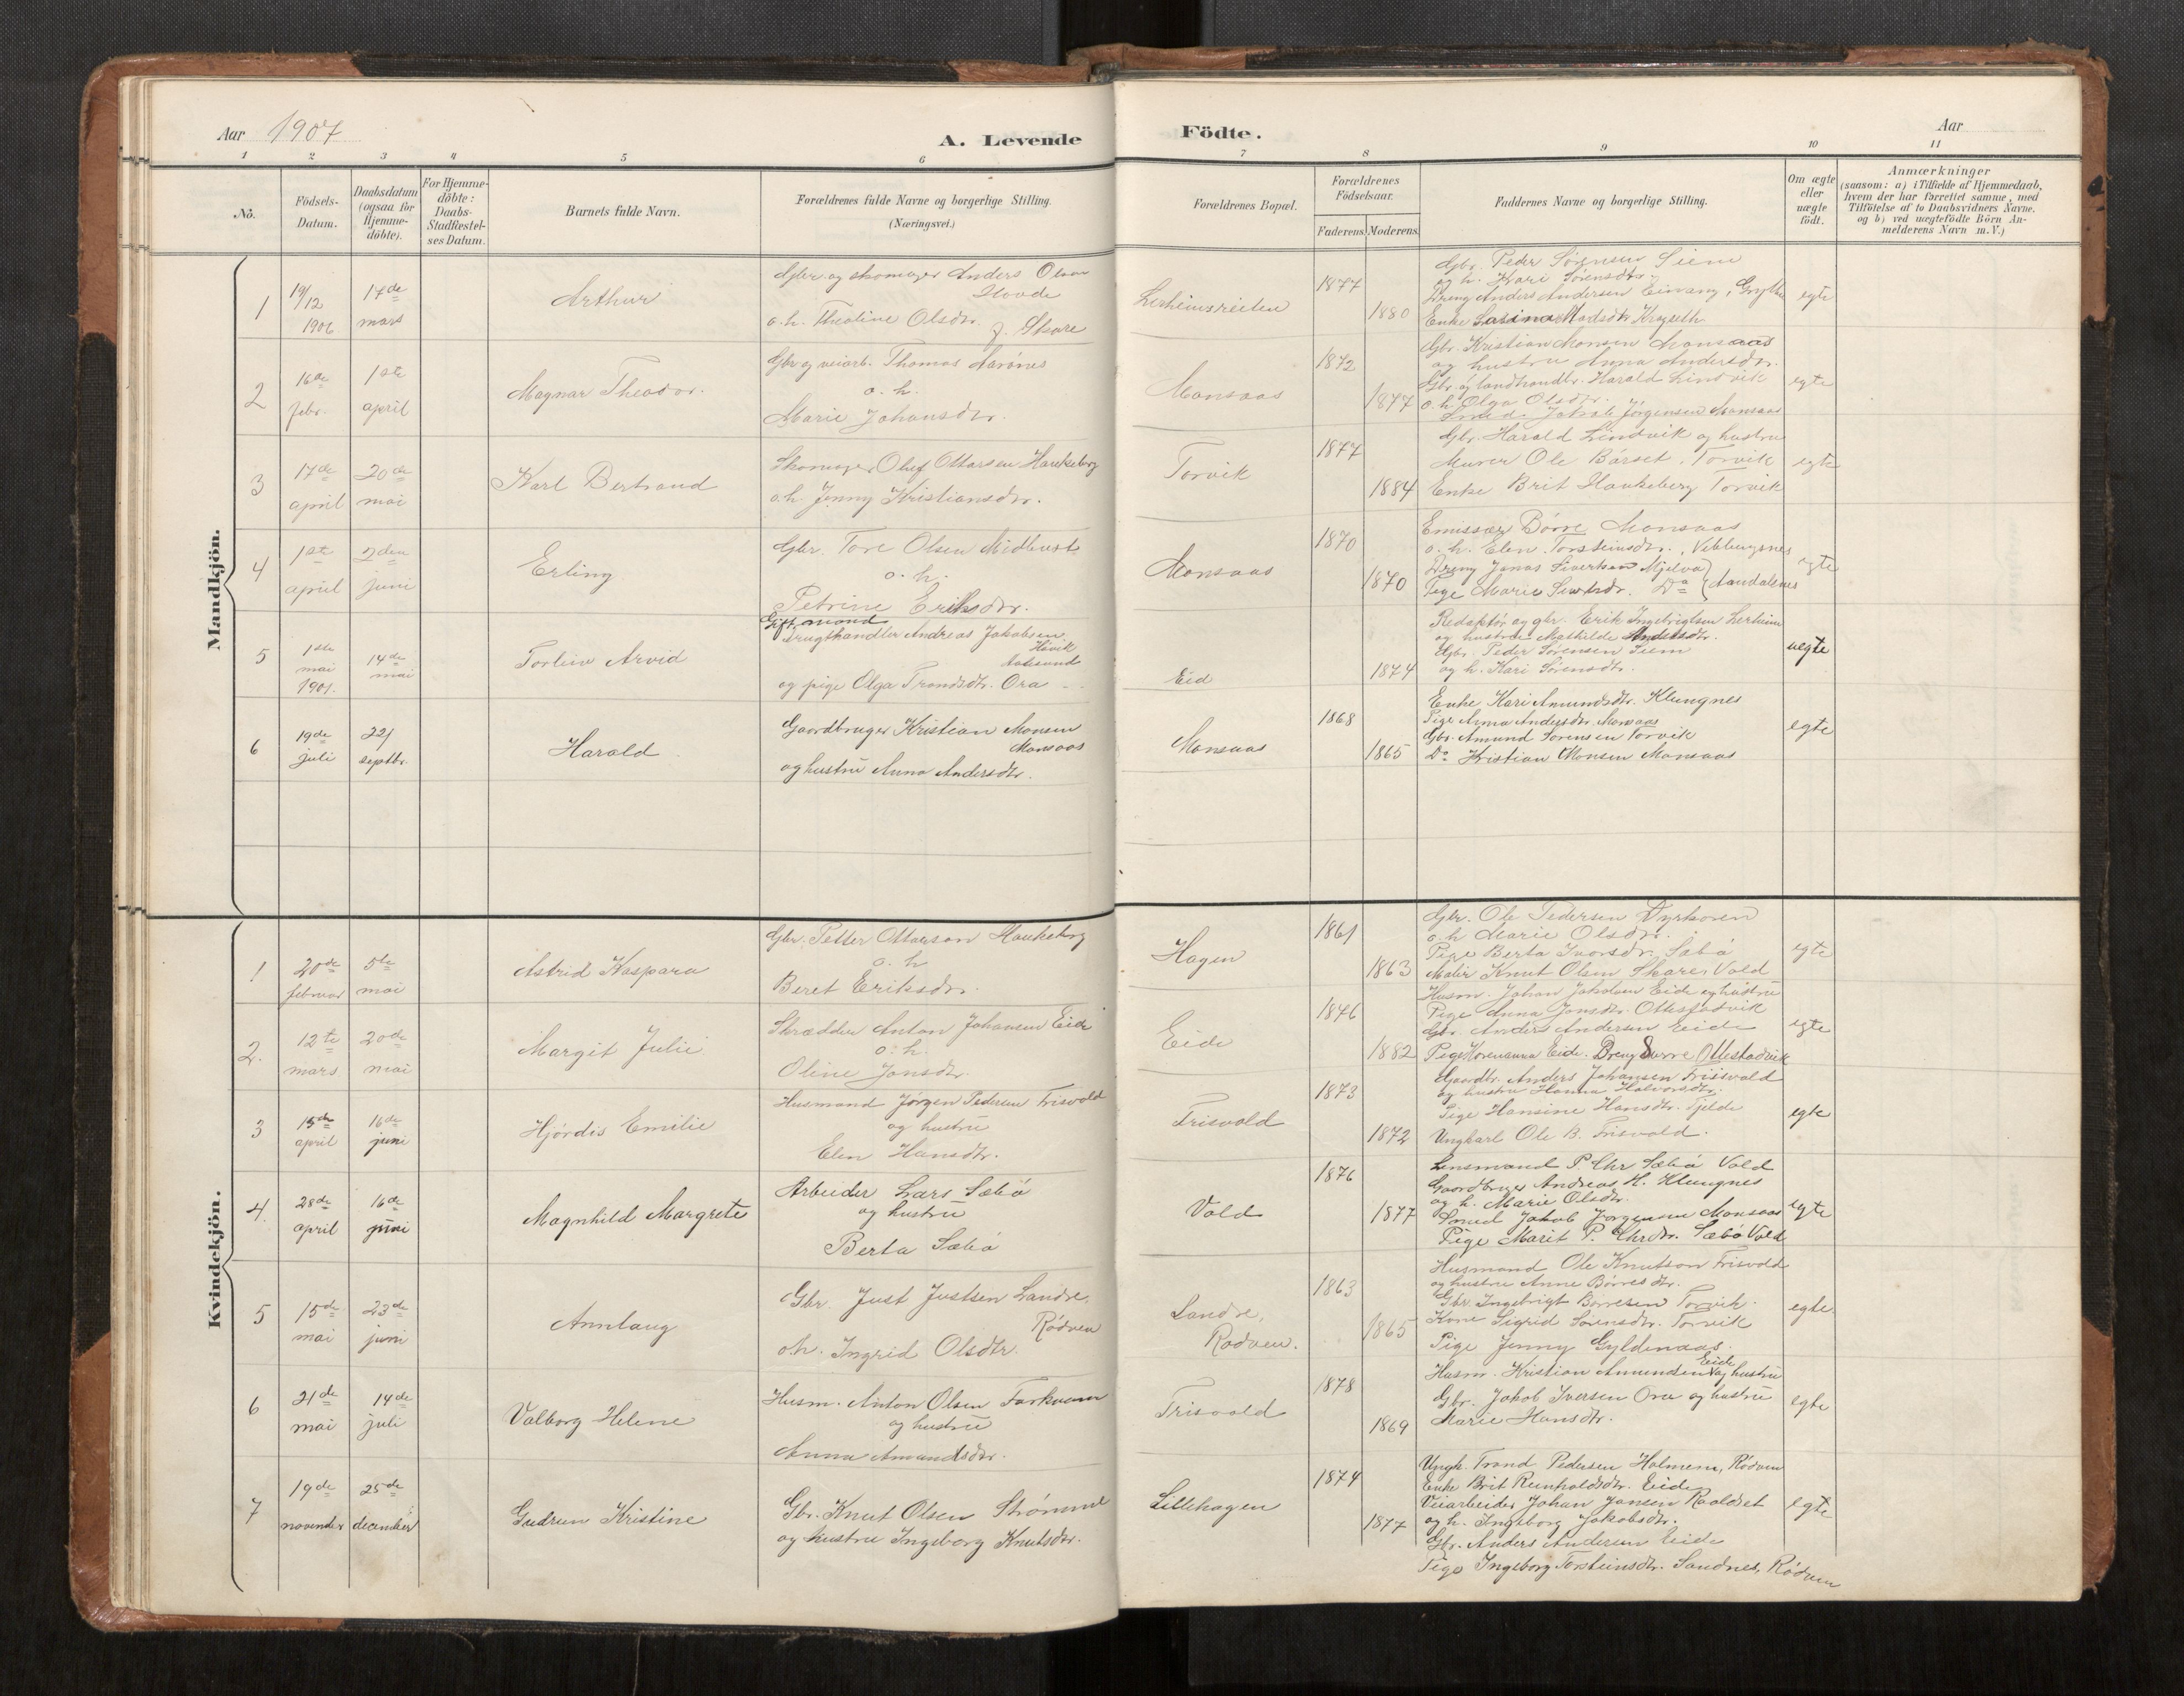 Aar 1907
A. Levende Födte.
Aar
1 2 3 4 5 6 7 8 9 10 11
Nò.
Födsels-Datum.
Daabsdatum (ogsaa for Hjemme-döbte).
For Hjemme-döbte: Daabs-Stadfæstel-ses Datum.
Barnets fulde Navn.
Forældrenes fulde Navne og borgerlige Stilling.
(Næringsvei.)
Forældrenes Bopæl.
Forældrenes Födselsaar.
Faderens. Moderens.
Faddernes Navne og borgerlige Stilling.
Om ægte eller uægte födt.
Anmærkninger
(saasom: a) i Tilfælde af Hjemmedaab,
hvem der har forrettet samme, med
Tilföielse af to Daabsvidners Navne,
og b) ved uægtefödte Börn An-
melderens Navn m. V.)
Mandkjön.
1
19/12 1906
17de mars
Arthur
Gbr og skomager Anders Olsen
Hovde
o. h. Theoline Olsdtr. f. Skare
Lerheimsreiten
1877
1880
Gbr. Peder Sörensen Siem
og h. Kari Sörensdtr.
Dreng Anders Andersen Einang, Grytten
Enke Lasina Madsdtr Kirseth
egte
2
16de febr.
1ste april
Magnar Theodor.
Gbr og veiarb. Thomas Aarönes
o. h.
Marie Johansdtr.
Monsaas
1872
1877
Gbr. Kristian Monsen Monsaas
og hustru Anna Andersdtr.
Gbr. og landhandlr. Harald Lindvik
o. h. Olga Olsdtr.
Smed. Jakob Jörgensen Monsaas
egte
3
17de april
20de mai
Karl Bertrand
Skomager Oluf Ottarsen Haukeberg
o. h. Jenny Kristiansdtr.
Torvik
1877
1884
Gbr. Harald Lindvik og hustru
Murer Ole Bárset, Torvik
Enke Brit Haukeberg Torvik
egte
4
1ste april
2den juni
Erling
Gbr. Tore Olsen Midbust
o. h.
Petrine Eriksdtr.
Monsaas
1870
1870
Emissær Börre Monsaas
o. h. Elen Torsteinsdtr., Vebbungsnes
Dreng Jonas Sivertsen Mjelva
Pige Marie Sivertsdr. Do Aandalsnes
egte
5
1ste mai 1901.
14de mai
Torleiv Arvid
Gift mand
Frugthandler Andreas Jakobsen
Hövik
Aalesund
og pige Olga Trondsdtr. Ora
Eid
1874
Redaktör og gbr. Erik Ingebrigtsen Lerheim
og hustru Mathilde Andersdtr.
Gbr. Peder Sörensen Siem
og h. Kari Sörensdtr.
uegte
6
19de juli
22/ septbr.
Harald
Gaardbruger Kristian Monsen
Monsaas
og hustru Anna Andersdtr.
Monsaas
1868
1865
Enke Kari Amundsdtr. Klungnes
Pige Anna Andersdtr. Monsaas
Gbr. Amund Sörensen Torvik
Do Kristian Monsen Monsaas
egte
Kvindekjön.
1
20de februar
5te mai
Astrid Kaspara
Gbr. Petter Ottarson Haukeberg
o. h
Beret Eriksdtr.
Hagen
1861
1863
Gbr. Ole Pedersen Dyrkoren
o. h Marie Olsdtr.
Pige Berta Ivarsdtr. Sæbö
Maler Knut Olsen Skare, Vold
egte
2.
12te mars
20de mai
Margit Julii
Skrædder Anton Johansen Eide
o. h.
Oline Jonsdtr.
Eide
1846
1882
Husm. Johan Jakobsen Eide og hustru
Pige Anna Jonsdtr. Ottestadvik
Gbr. Anders Andersen Eide
Pige Horensanna Eide. Dreng Svere Ottestadvik
egte
3
15de april
16de juni
Hjördis Emilie
Husmand Jörgen Pedersen Frisvold
og hustru
Elen Hansdtr.
Frisvold
1873
1872
Gaardbr. Anders Johansen Frisvold
og hustru Hanna Halvorsdtr.
Pige Hansine Hansdtr. Tjelde
Ungkarl Ole B. Frisvold.
egte
4.
28de april
16de juni
Magnhild Margrete
Arbeider Lars Sæbö
og hustru
Berta Sæbö
Vold
1876
1877
Lensmand P. Chr Sæbö Vold
Gaardbruger Andreas H. Klungnes
og h. Marie Olsdtr.
Smed Jakob Jörgensen Monsaas
Pige Marit P. Chrdtr. Sæbö Vold
egte
5
15de mai
23de juni
Annlaug
Gbr. Just Justsen Landre,
Rödven
o.h. Ingrid Olsdtr.
Landre, Rodven.
1863
1865
Husmand Ole Knutson Frisvold
og hustru Anne Börresdtr.
Gbr. Ingebrigt Börresen Torvik.
Kone Sigrid Sörensdtr. Torvik
Pige Jenny Gyldenaas.
egte.
6
21de mai
14de juli
Valborg Helene
Husm. Anton Olsen Torkvam
og hustru
Anna Amundsdtr.
Frisvold
1878
1869
Husm. Kristian Amundsen Eide og hustru
Gbr. Jakob Iversen Ora og hustru
Marie Hansdtr.
egte
7
19de november
25de december
Gudrun Kristine
Gbr. Knut Olsen Strömme
og hustru Ingeborg Knutsdtr.
Lillehagen
1874
1877
Ungk. Trond Pedersen Holmem, Rödven
Enke Brit Reinholdsdtr. Eide
Veiarbeider Johan Jonsen Roaldset
og h. Ingeborg Jakobsdtr.
Gbr. Anders Andersen Eide
Pige Ingeborg Torsteinsdtr. Sandnes, Rödven
egte